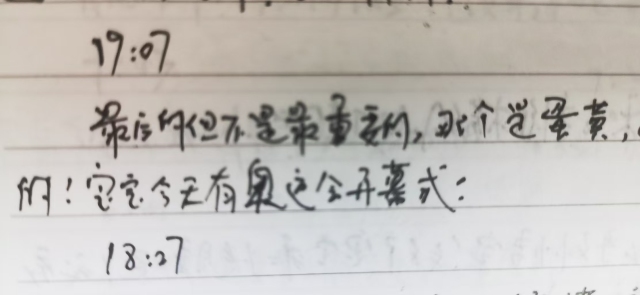 19:07
最后的但不是最重要的,那个蛋黄,
的!宝宝今天有奥运会开幕式:
18:27